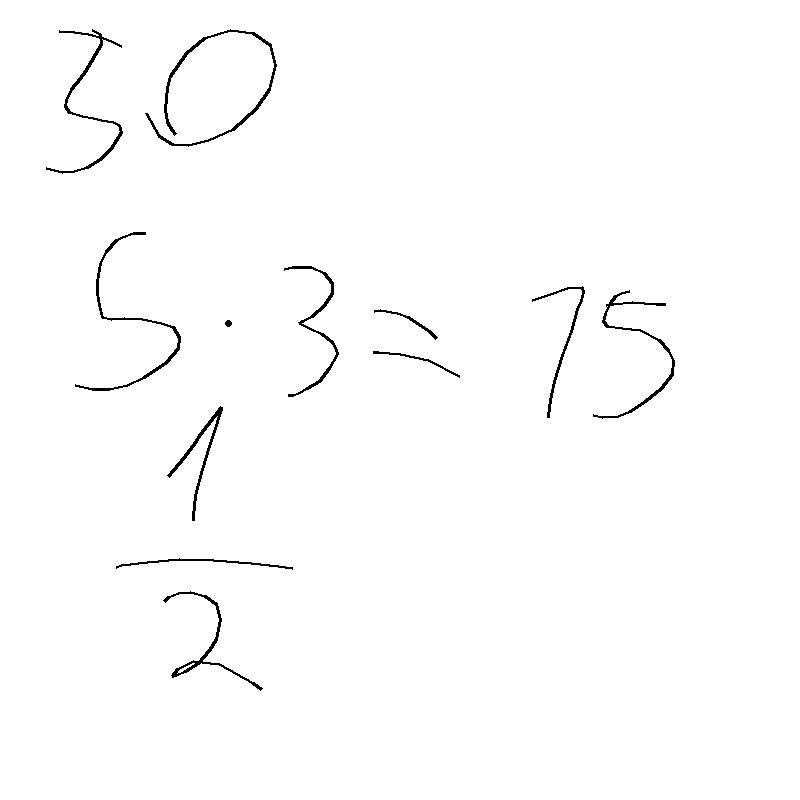 30
5 · 3 = 15
1
2